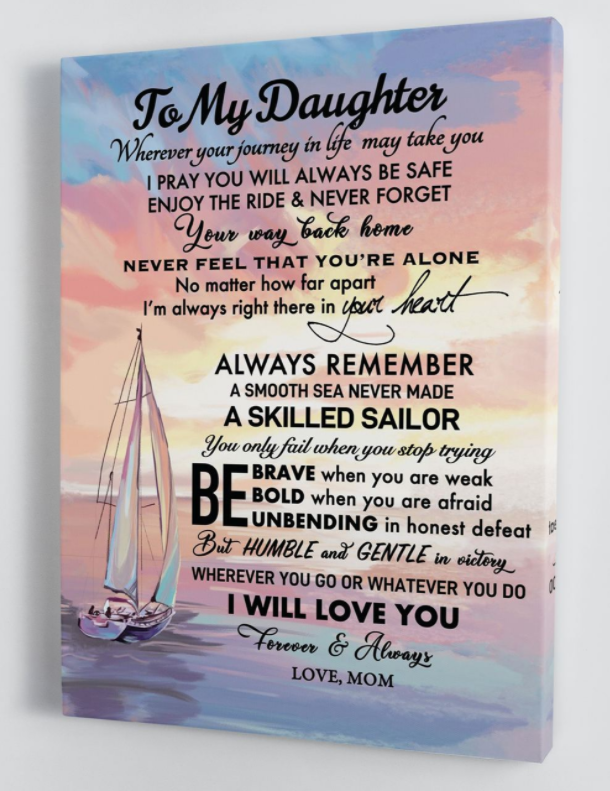 To My Daughter
Wherever your journey in life may take you
I PRAY YOU WILL ALWAYS BE SAFE
ENJOY THE RIDE & NEVER FORGET
Your way back home
NEVER FEEL THAT YOU'RE ALONE
No matter how far apart
I'm always right there in your heart
ALWAYS REMEMBER
A SMOOTH SEA NEVER MADE
A SKILLED SAILOR
You only fail when you stop trying
BE BRAVE when you are weak
BOLD when you are afraid
UNBENDING in honest defeat
But HUMBLE and GENTLE in victory
WHEREVER YOU GO OR WHATEVER YOU DO
I WILL LOVE YOU
Forever & Always
LOVE, MOM